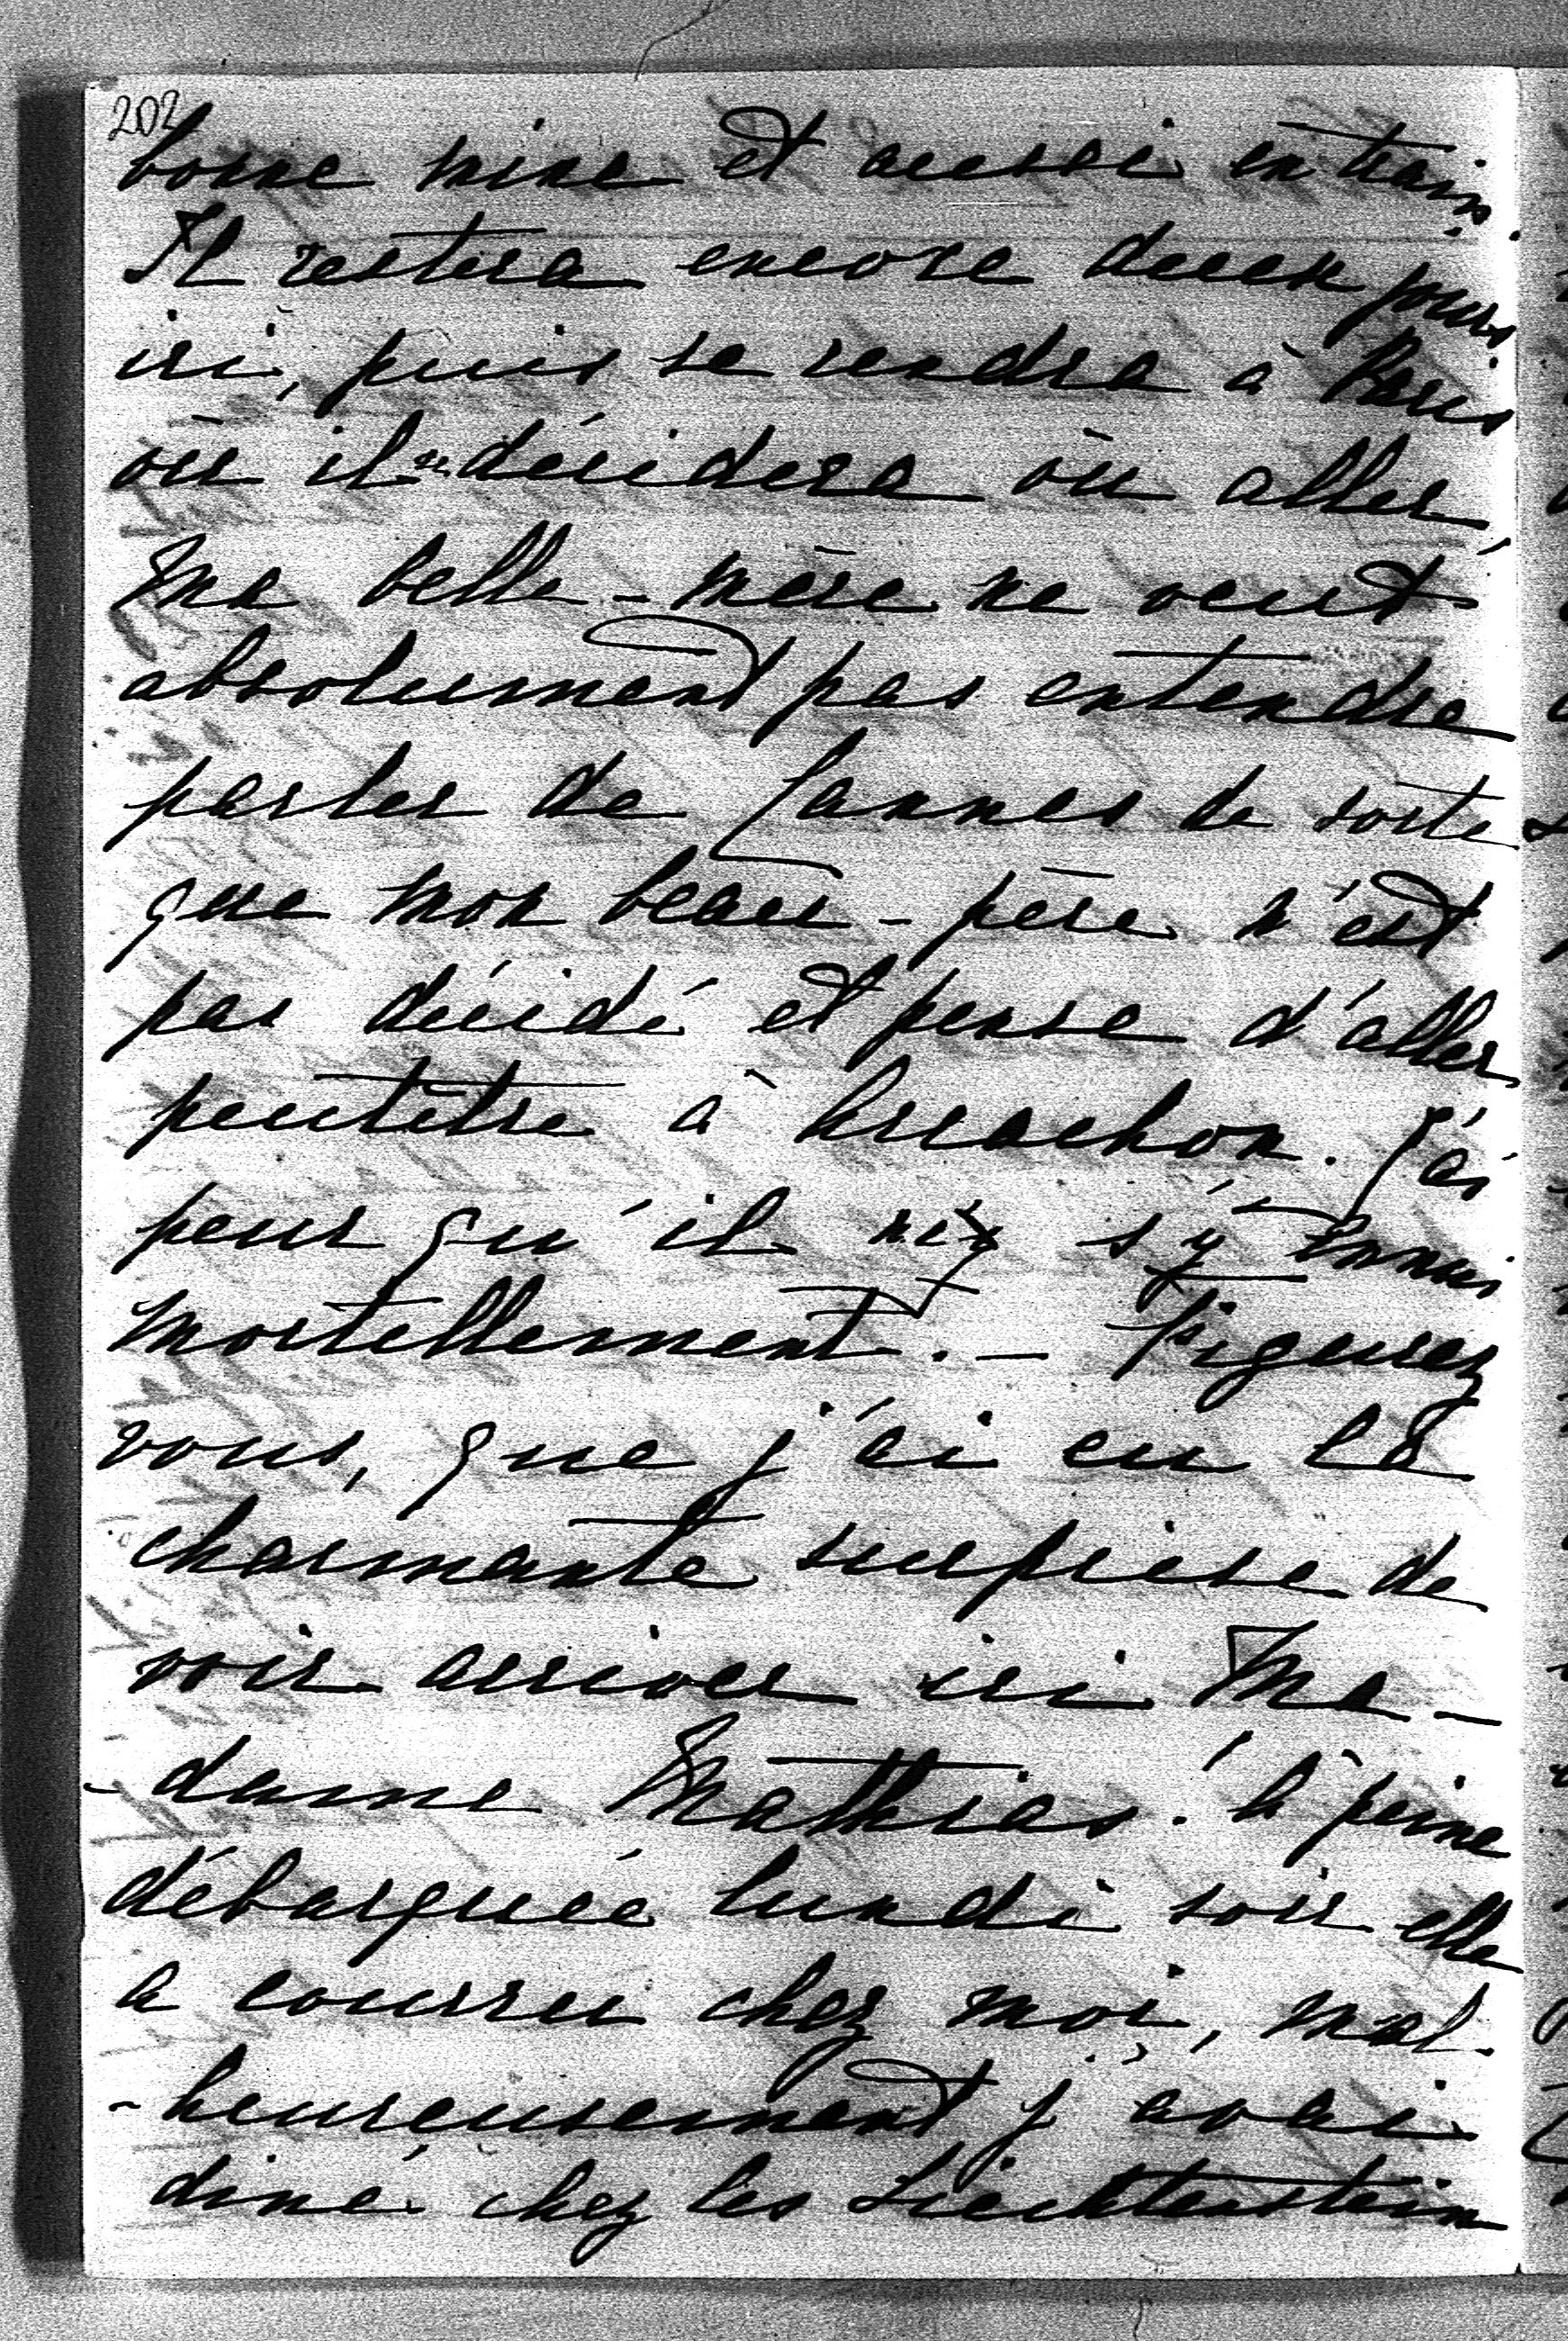 202
bonne mine et aussi en train.
Il restera encore deux jours
ici, puis se rendra à Paris
où il décidera où aller.
Ma belle-mère ne veut
absolument pas entendre
parler de Cannes de sorte
que mon beau-père n'est
pas décidé et pense d'aller
peutêtre à Arcachon. J'ai
peur qu'il s'y ennui
mortellement. — Figurez
vous, que j'ai eu la
charmante surprise de
voir arriver ici Ma-
-dame Mathias. A peine
débarquée lundi soir elle
a courru chez moi, mal-
-heureusement j'avai
diné chez les Liechtenstein